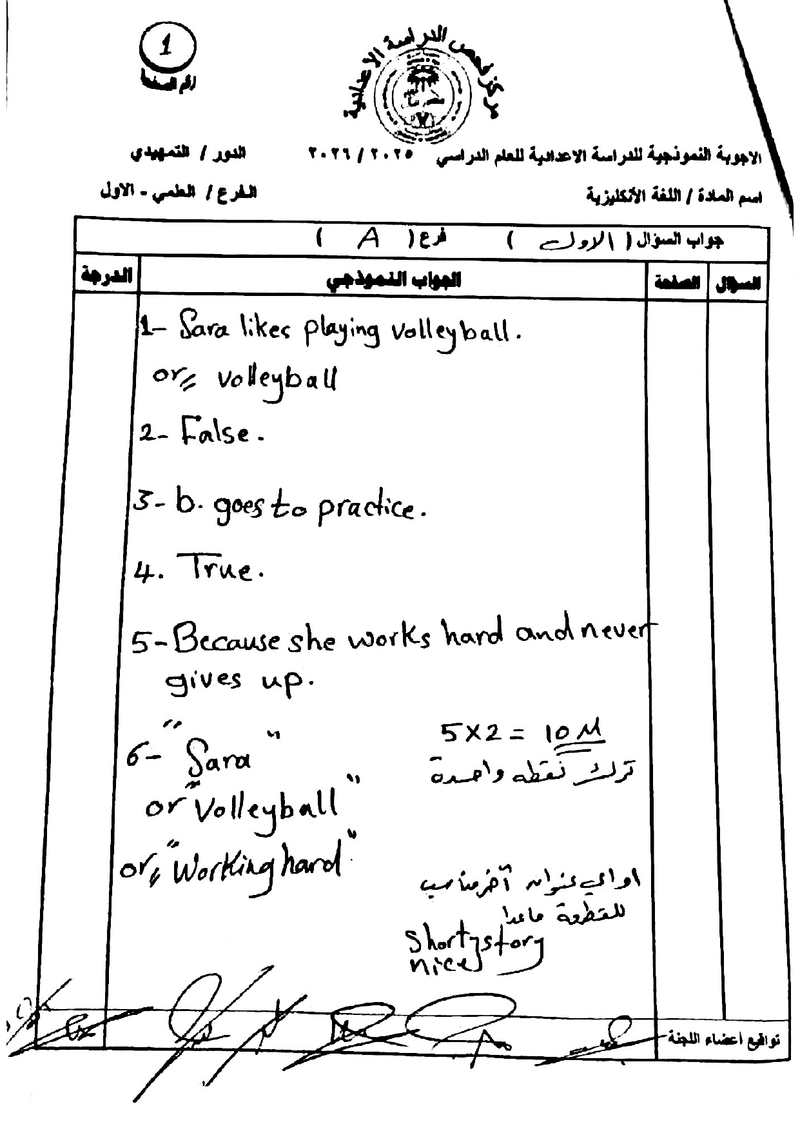 1
رقم الصفحة
مركز فحص الدراسة الاعدادية
الاجوبة النموذجية للدراسة الاعدادية للعام الدراسي ٢٠٢٥ / ٢٠٢٦ الدور / التمهيدي
اسم المادة / اللغة الأنكليزية الفرع / العلمي - الاول
جواب السؤال ( الاول ) فرع ( A )
السؤال الصفحة الجواب النموذجي الدرجة
1- Sara likes playing volleyball.
or volleyball
2- False.
3- b. goes to practice.
4. True.
5- Because she works hard and never
gives up.
6- "Sara"
5x2 = 10 M
ترك نقطه واحدة
or "Volleyball"
or "Working hard"
او اي عنوان آخر مناسب
للقطعة ماعدا
Short story
nice
تواقيع أعضاء اللجنة